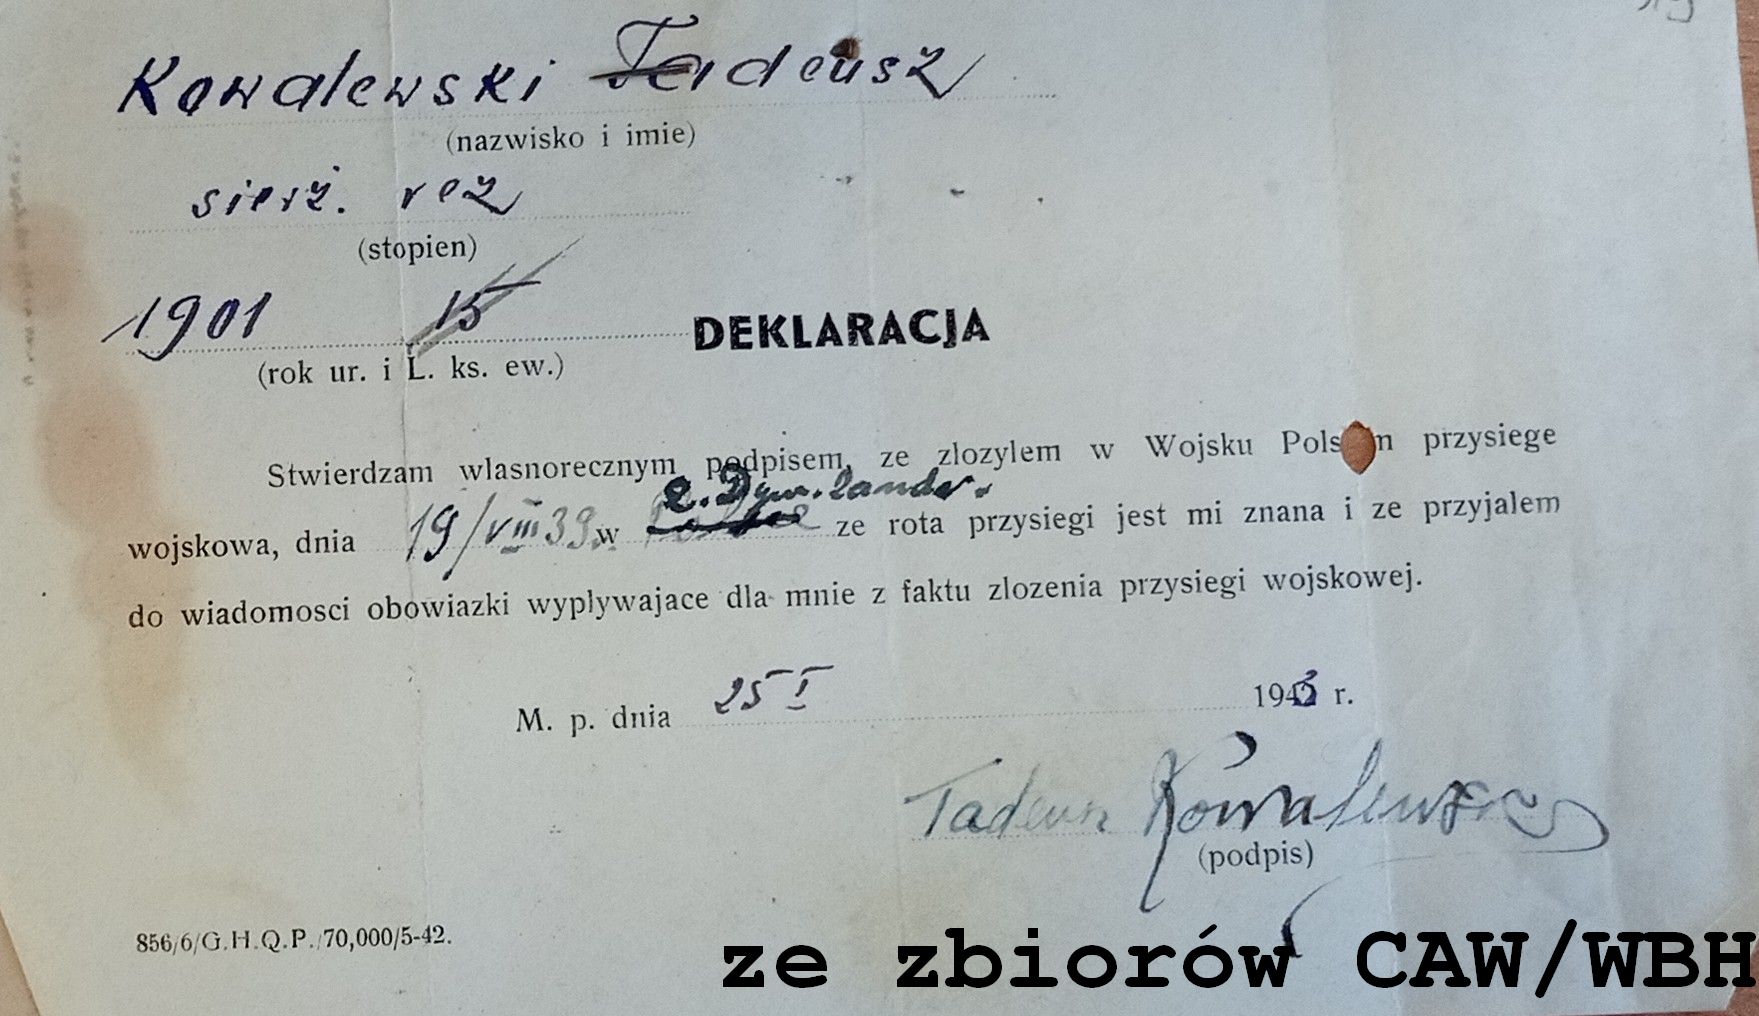 Kowalewski Tadeusz
(nazwisko i imie)
sierż. rez
(stopien)
1901 15
(rok ur. i L. ks. ew.)
DEKLARACJA
Stwierdzam wlasnorecznym podpisem, ze zlozylem w Wojsku Pols m przysiege
wojskowa, dnia 19/VIII 39 w ze rota przysiegi jest mi znana i ze przyjalem
do wiadomosci obowiazki wyplywajace dla mnie z faktu zlozenia przysiegi wojskowej.
M. p. dnia 25 I 1943 r.
Tadeusz Kowalewski
(podpis)
856/6/G.H.Q.P./70,000/5-42.
ze zbiorów CAW/WBH